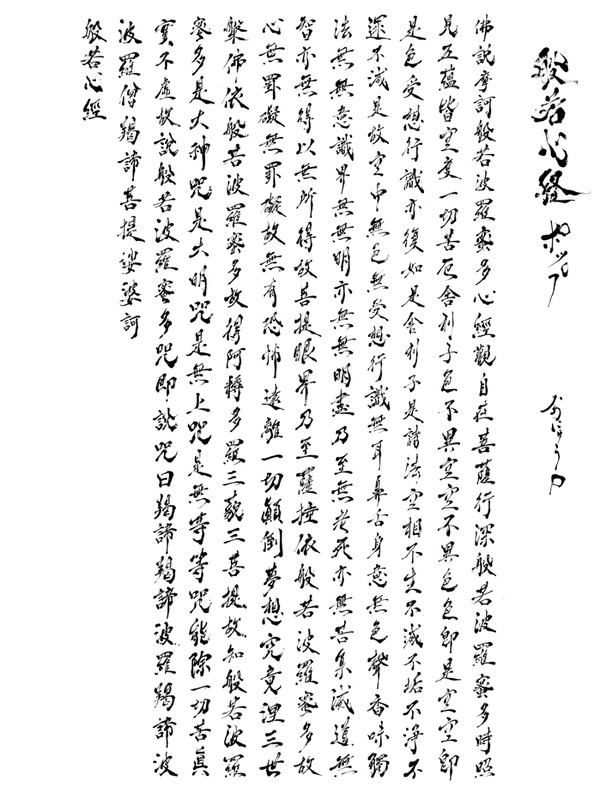 般若心経 ポップ
佛説摩訶般若波羅蜜多心經觀自在菩薩行深般若波羅蜜多時照
見五蘊皆空度一切苦厄舍利子色不異空空不異色色即是空空即
是色受想行識亦復如是舍利子是諸法空相不生不滅不垢不淨不
不減是故空中無色無受想行識無耳鼻舌身意無色聲香味觸
法無無意識界無無明亦無無明盡乃至無老死亦無苦集滅道無
智亦無得以無所得故菩提眼界乃至薩埵依般若波羅蜜多故
心無罣礙無罣礙故無有恐怖遠離一切顛倒夢想究竟涅三世
槃佛依般若波羅蜜多故得阿耨多羅三藐三菩提故知般若波羅
蜜多是大神咒是大明咒是無上咒是無等等咒能除一切苦眞
實不虛故説般若波羅蜜多咒即説咒曰羯諦羯諦波羅羯諦波
波羅僧羯諦菩提娑婆訶
般若心經